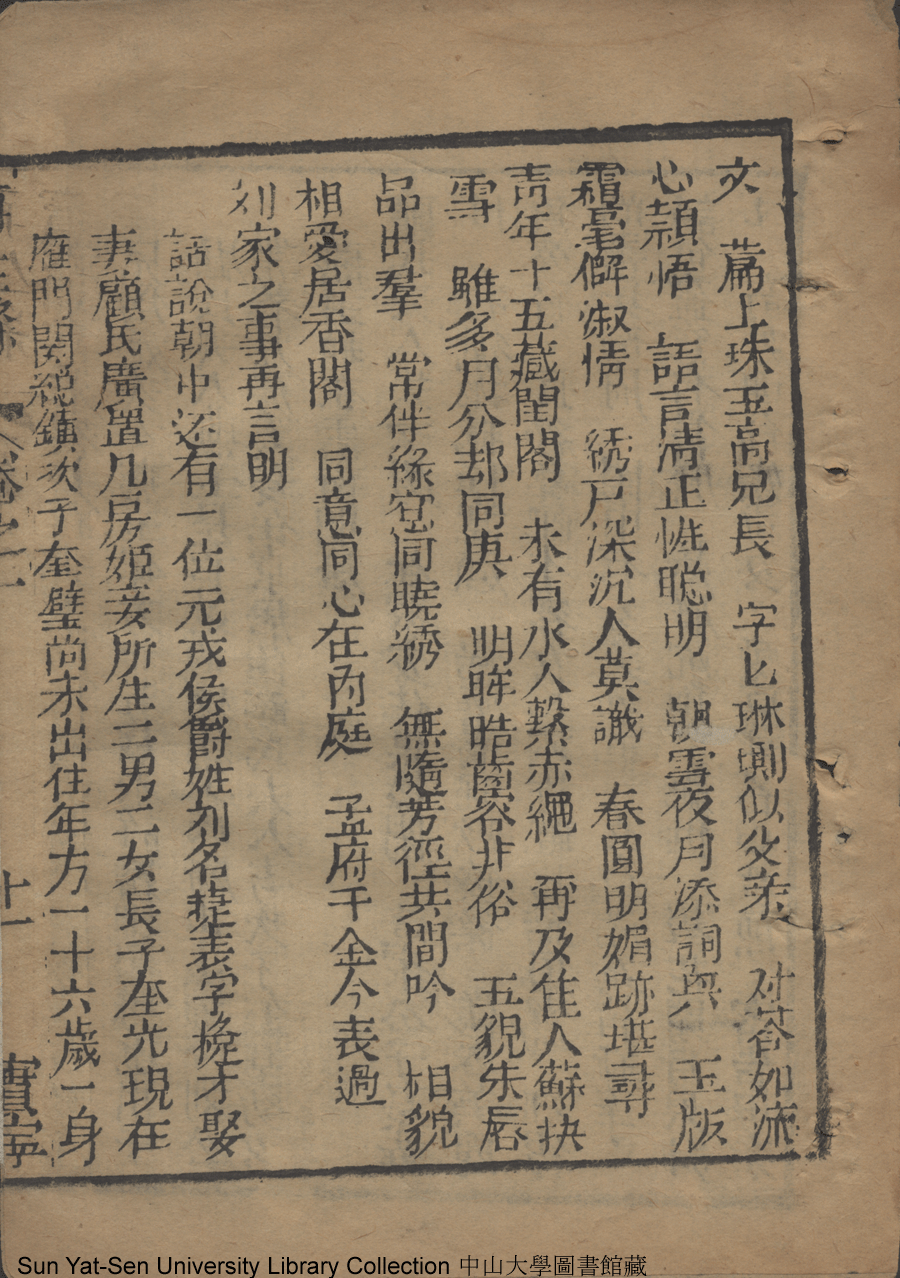 文　篇上珠玉高兄長　字匕琳瑯似父亲　对荅如流
心頴悟　語言清正性聪明　朝雲夜月添詞興　玉版
霜毫僻淑情　綉戸深沉人莫識　春圓明媚跡堪尋
青年十五藏閨閣　未有氷人繫赤繩　再及佳人蘇抉
雪　雖多月分却同庚　明眸皓齒容非俗　玉貌朱唇
品出羣　常伴緣窓同曉綉　無隨芳徑共間吟　相貌
相愛居香閣　同意同心在內庭　孟府千金今表過
刘家之事再言明
話說朝中还有一位元戎侯爵姓刘名捷表字挽才娶
妻顧氏廣置几房姬妾所生二男二女長子奎光現在
雁門関総鎮次子奎璧尚未出仕年方一十六歲一身
卷之一　十一　寳寧
Sun Yat-Sen University Library Collection 中山大學圖書館藏